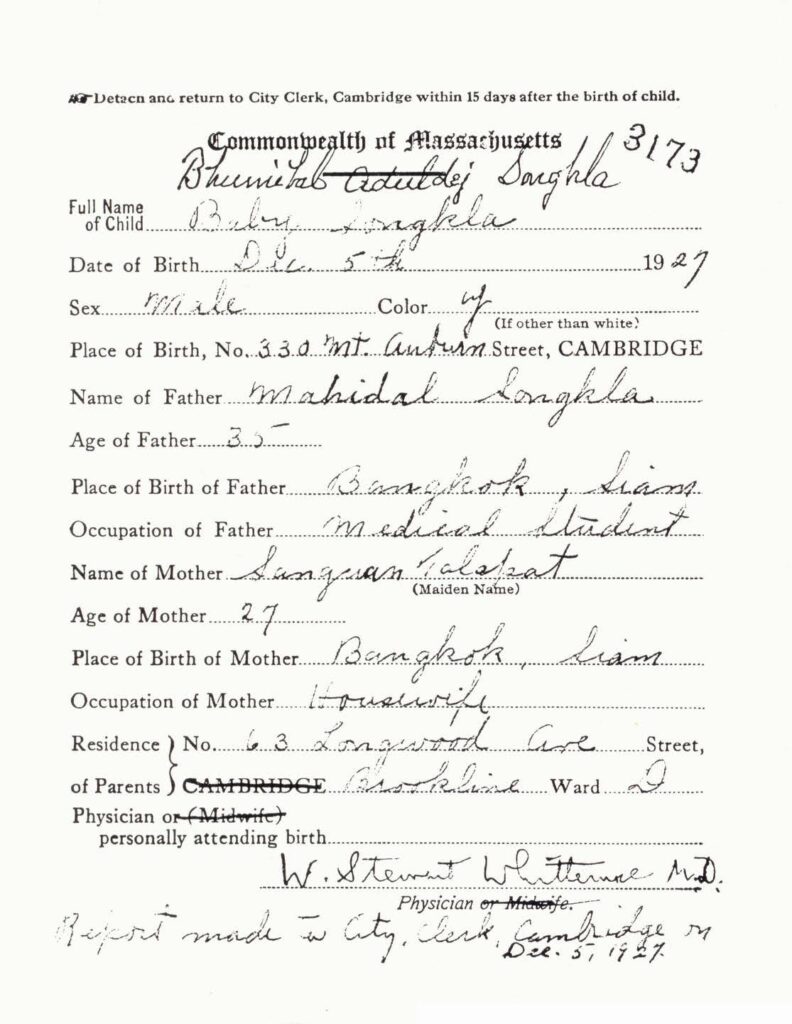 Detach and return to City Clerk, Cambridge within 15 days after the birth of child.
Commonwealth of Massachusetts 13173
Bhumibal Aduldej Songkla
Full Name of Child Baby Songkla
Date of Birth Dec. 5th 1927
Sex Male Color y
(If other than white)
Place of Birth, No. 330 Mt. Auburn Street, CAMBRIDGE
Name of Father Mahidal Songkla
Age of Father 35
Place of Birth of Father Bangkok, Siam
Occupation of Father Medical Student
Name of Mother Sanguan Talapat
(Maiden Name)
Age of Mother 27
Place of Birth of Mother Bangkok, Siam
Occupation of Mother Housewife
Residence of Parents No. 63 Longwood Ave Street,
CAMBRIDGE Brookline Ward D
Physician or (Midwife)
personally attending birth
W. Stewart Whittemore M.D.
Physician or Midwife.
Report made to City Clerk, Cambridge on
Dec. 5, 1927.